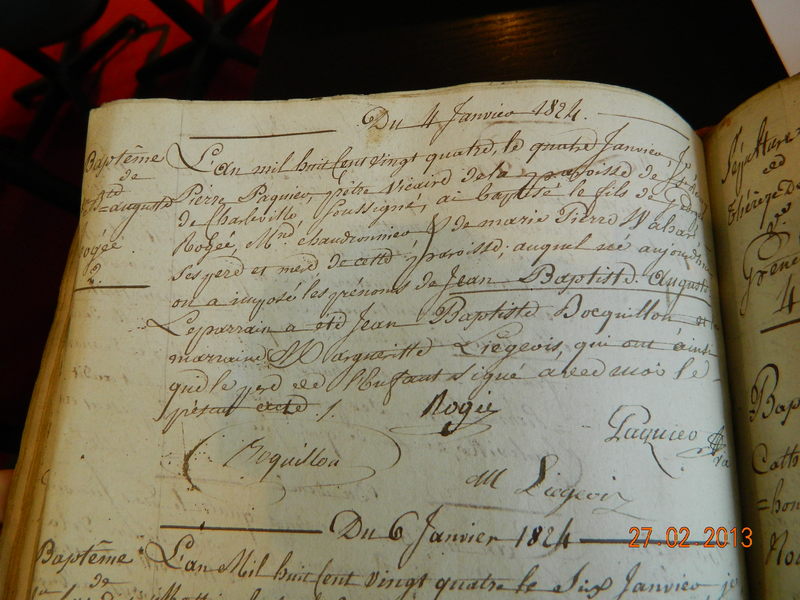 Du 4 Janvier 1824.
Baptême
de
auguste
Rogée
2.
L'an mil huit cent vingt quatre, le quatre Janvier, je
Pierre Paquier, prêtre vicaire de la paroisse de
de Charleville, soussigné, ai baptisé le fils de
Rogée, Md chaudronnier & de marie Pierre
ses père et mère de cette paroisse, auquel né aujourd'hui
on a imposé les prénoms de Jean Baptiste Auguste
Le parrain a été Jean Baptiste Bocquillon et la
marraine Marguerite Liégeois, qui ont ainsi
que le père de l'Enfant signé avec moi le
présent acte ./.
Rogée
Paquier
Bocquillon
M Liégeois
Du 6 Janvier 1824
Baptême
de
L'an Mil huit cent vingt quatre le Six Janvier je
Sépulture
de
4
Bap
Cath
=hon
27.02.2013